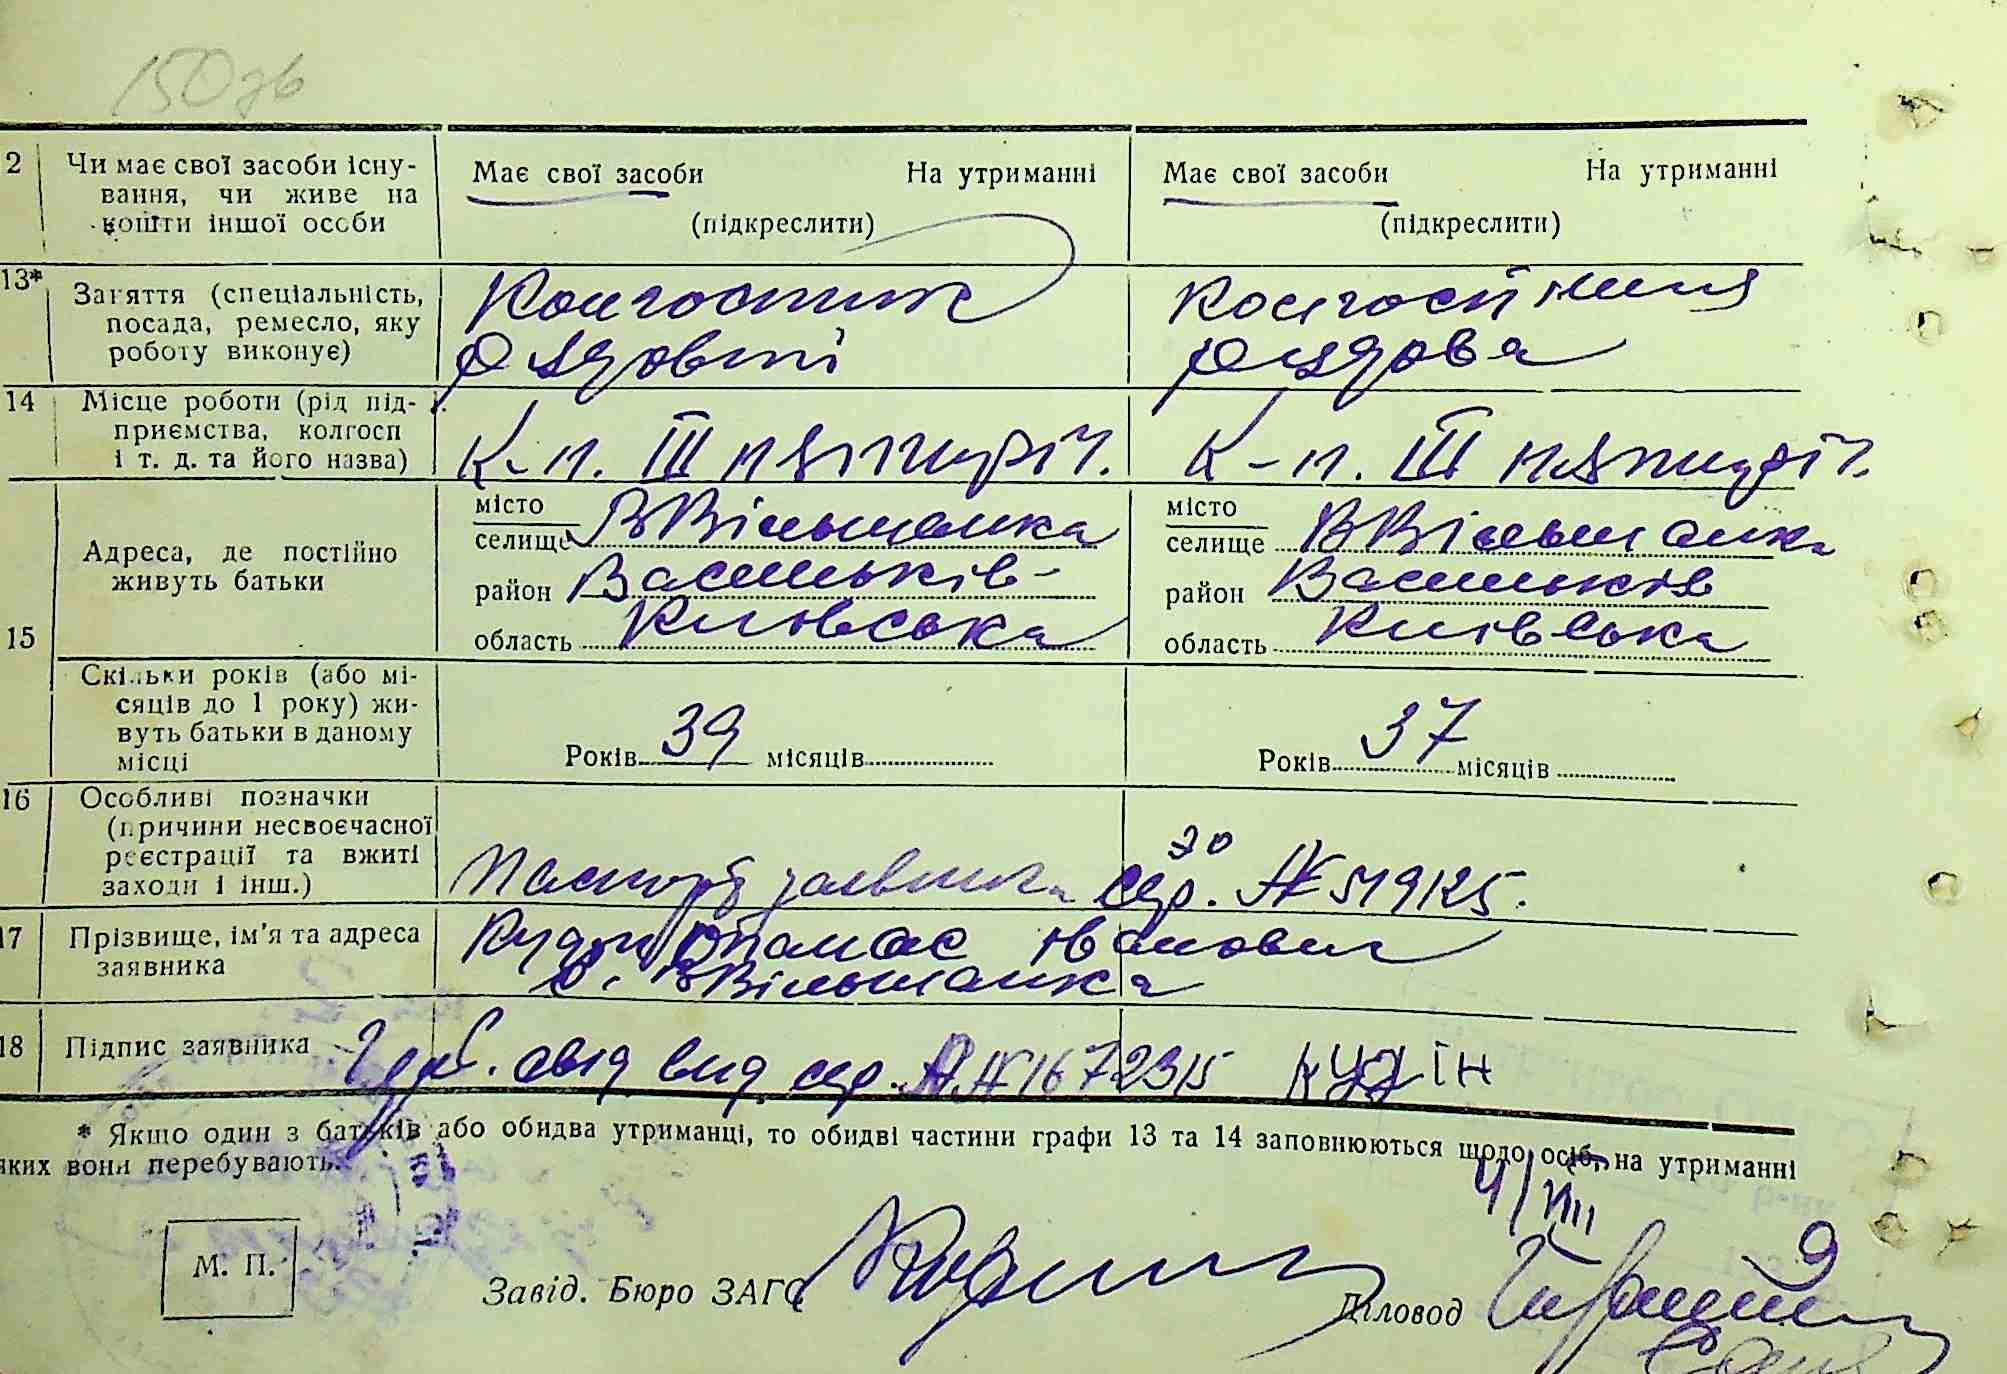 150зв
2 Чи має свої засоби існу-
вання, чи живе на
кошти іншої особи
Має свої засоби На утриманні
(підкреслити)
Має свої засоби На утриманні
(підкреслити)
13* Заняття (спеціальність,
посада, ремесло, яку
роботу виконує)
Колгоспник
рядовий
Колгоспниця
рядова
14 Місце роботи (рід під-
приємства, колгосп
і т. д. та його назва)
К-п. III пятиріч.
К-п. III пятиріч.
15 Адреса, де постійно
живуть батьки
місто
селище ВВільшанка
район Васильків-
область Київська
місто
селище ВВільшанка
район Васильків
область Київська
Скільки років (або мі-
сяців до 1 року) жи-
вуть батьки в даному
місці
Років 39 місяців
Років 37 місяців
16 Особливі позначки
(причини несвоєчасної
реєстрації та вжиті
заходи і інш.)
Паспорт заявника сер. ЭО № 519125.
17 Прізвище, ім'я та адреса
заявника
Кудін Панас Іванович
с. ВВільшанка
18 Підпис заявника
свід. вид. сер. № 1672315 Кудін
* Якщо один з батьків або обидва утриманці, то обидві частини графи 13 та 14 заповнюються щодо осіб, на утриманні
яких вони перебувають.
4/VIII
М. П.
Завід. Бюро ЗАГС
Діловод